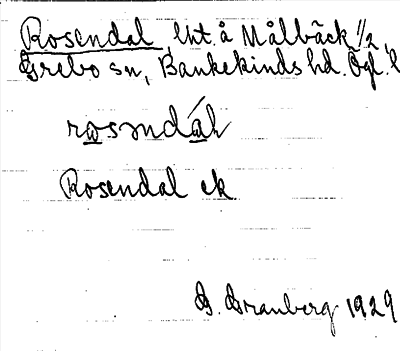 Rosendal, lht. å Målbäck 1/2,
Grebo sn, Bankekinds hd. Ögl. l
Rosendal ek
G. Granberg 1929